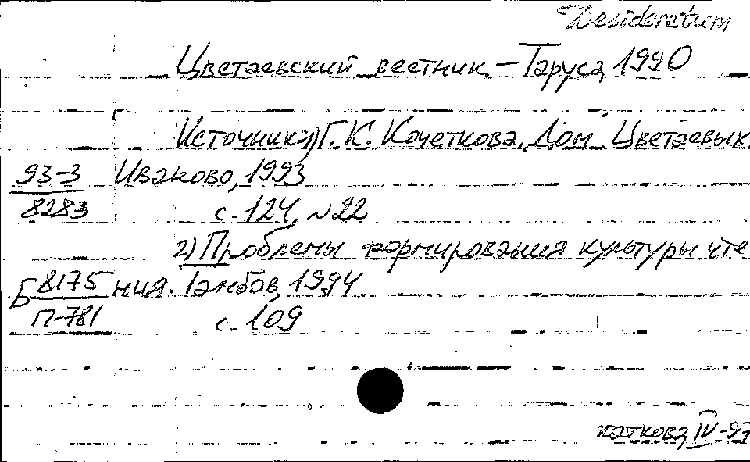 Desideratum
Цветаевский вестник – Таруса, 1990
Источники: 1) Г. К. Кочеткова. Дом Цветаевых.
93-3 Иваково, 1993
8283 с. 124, №22
2) Проблемы формирования культуры чте
Б 8175 ния. Тамбов, 1994
П-781 с. 109
каткова IV-97